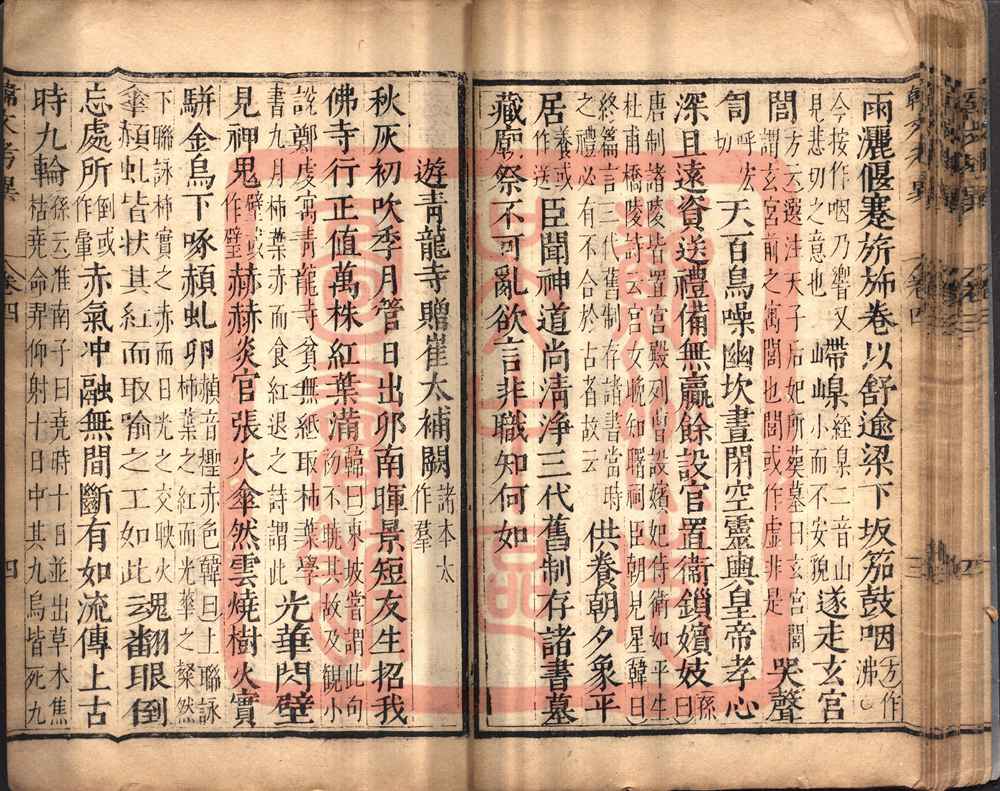 雨灑偃蹇旂旆卷以舒逾梁下坂笳鼓咽方作沸〇
今按作咽乃響又見悲切之意也嵽嵲經臬二音山小而不安貌遂走玄宮
閭方云邊注天子后妃所葬墓曰玄宮閭謂玄宮前之寓閭也閭或作虛非是哭聲
訇呼宏切天百鳥噪幽坎晝閉空靈輿皇帝孝心
深且遠資送禮備無贏餘設官置衛鎖嬪妓孫曰
唐制諸陵皆置宮殿列曹設嬪妃侍衛如平生杜甫橋陵詩云宮女晚知曙祠臣朝見星韓曰
終篇言三代舊制存諸書當時之禮必有不合於古者故云供養朝夕象平
居養或作送臣聞神道尚清淨三代舊制存諸書墓
藏廟祭不可亂欲言非職知何如
遊青龍寺贈崔太補闕諸本太作羣
秋灰初吹季月管日出卯南暉景短友生招我
佛寺行正值萬株紅葉滿韓曰東坡嘗謂此句初不曉其故及觀小
說鄭虔寓青龍寺貧無紙取柿葉學書九月柿葉赤而食紅退之詩謂此光華閃壁
見神鬼壁或作壁赫赫炎官張火傘然雲燒樹火實
駢金烏下啄赬虬卵赬音檉赤色韓曰上聯詠柿葉之紅而光華之粲然
下聯詠柿實之赤而日光之交映火傘赬虬皆狀其紅而取喻之工如此魂翻眼倒
忘處所倒或作暈赤氣冲融無間斷有如流傳上古
時九輪孫云淮南子曰堯時十日並出草木焦枯堯命羿仰射十日中其九烏皆死九
卷四
四